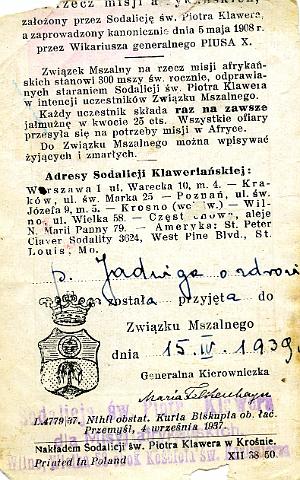 rzecz misji afrykańskich,
założony przez Sodalicję św. Piotra Klawera,
a zaprowadzony kanonicznie dnia 5 maja 1908 r.
przez Wikariusza generalnego PIUSA X.
Związek Mszalny na rzecz misji afrykań-
skich stanowi 300 mszy św. rocznie, odprawia-
nych staraniem Sodalicji św. Piotra Klawera
w intencji uczestników Związku Mszalnego.
Każdy uczestnik składa raz na zawsze
jałmużnę w kwocie 25 cts. Wszystkie ofiary
przesyła się na potrzeby misji w Afryce.
Do Związku Mszalnego można wpisywać
żyjących i zmarłych.
Adresy Sodalicji Klaweriańskiej:
Warszawa I ul. Warecka 10, m. 4. — Kra-
ków, ul. św. Marka 25 — Poznań, ul. św.
Józefa 9, m. 5. — Krosno — Wil-
no, ul. Wielka 58. — Częstochowa, aleje
N. Marii Panny 79. — Ameryka: St. Peter
Claver Sodality 3624, West Pine Blvd., St.
Louis, Mo.
p. Jadwiga
została przyjęta do
Związku Mszalnego
dnia 15. IV. 1939
Generalna Kierowniczka
Maria
L.4779/37. Nihil obstat. Kuria Biskupia ob. łac.
Przemyśl, 4 września 1937.
Sodalicja św. Piotra Klawera
dla Misyj
Nakładem Sodalicji św. Piotra Klawera w Krośnie.
Printed in Poland XII 38 50.